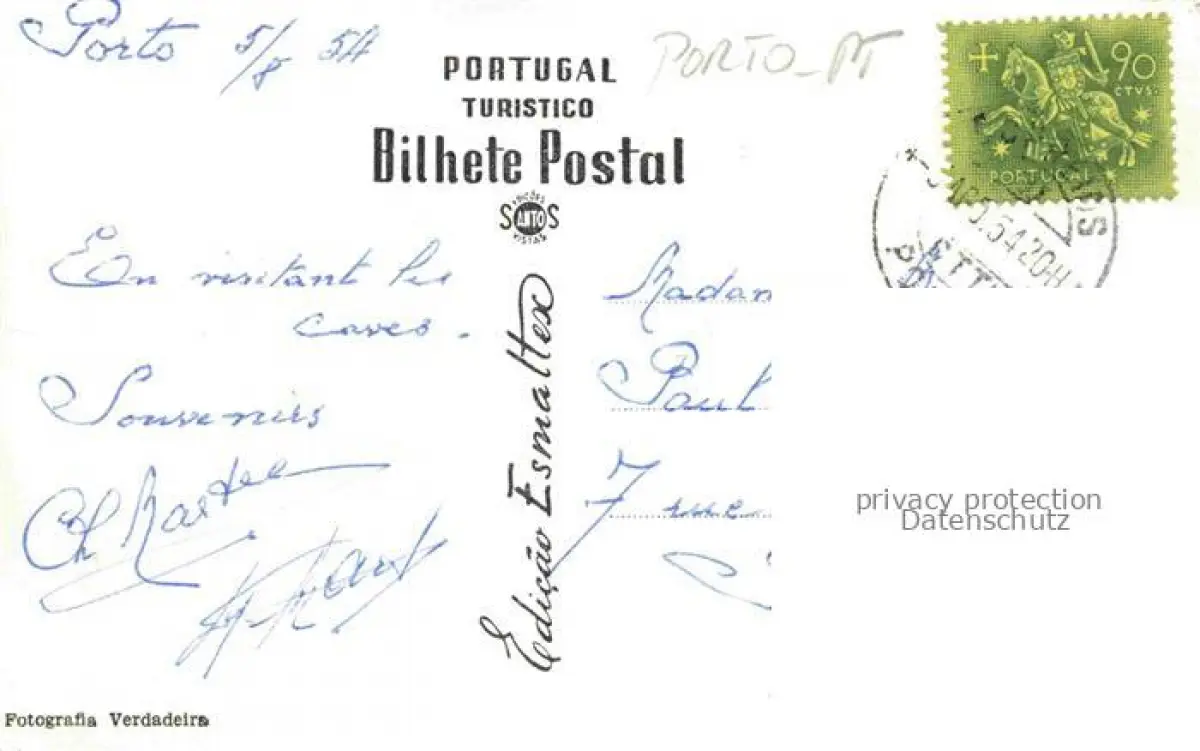 Porto 5/8 54
PORTO_PT
PORTUGAL
TURISTICO
Bilhete Postal
EDIÇÕES
SANTOS
VISTAS
90
CTVS.
PORTUGAL
54.20-H
En visitant les
caves.
Souvenirs
Edição Esmaltex
Madam
Paul
7 rue
privacy protection
Datenschutz
Fotografia Verdadeira